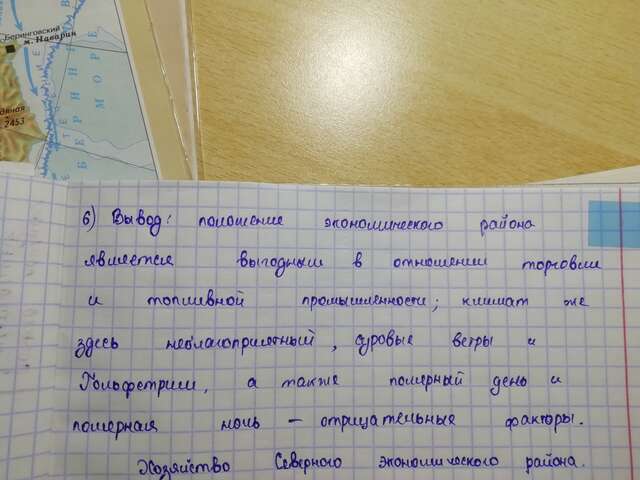 Беринговский
м. Наварин
2453
БЕРИНГ
МОРЕ
6) Вывод: положение экономического района
является выгодным в отношении торговли
и топливной промышленности; климат же
здесь неблагоприятный, суровые ветры и
Гольфстрим, а также полярный день и
полярная ночь – отрицательные факторы.
Хозяйство Северного экономического района.